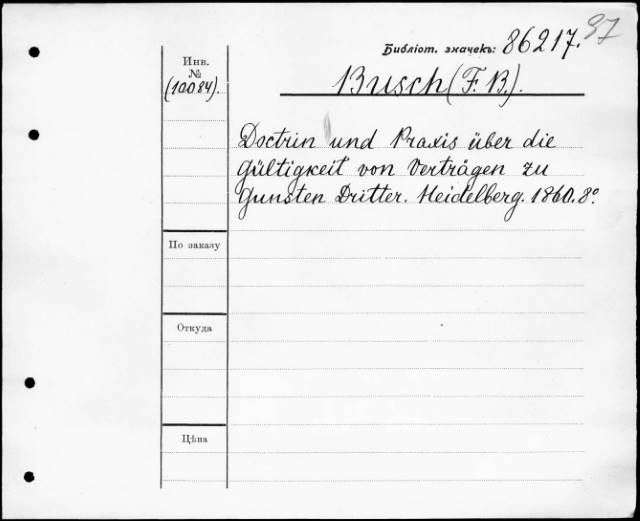 Библіот. значекъ: 86217.
37
Инв.
№
(10084).
Busch (F. B.).
Doctrin und Praxis über die
Gültigkeit von Verträgen zu
Gunsten Dritter. Heidelberg. 1860. 8º.
По заказу
Откуда
Цѣна